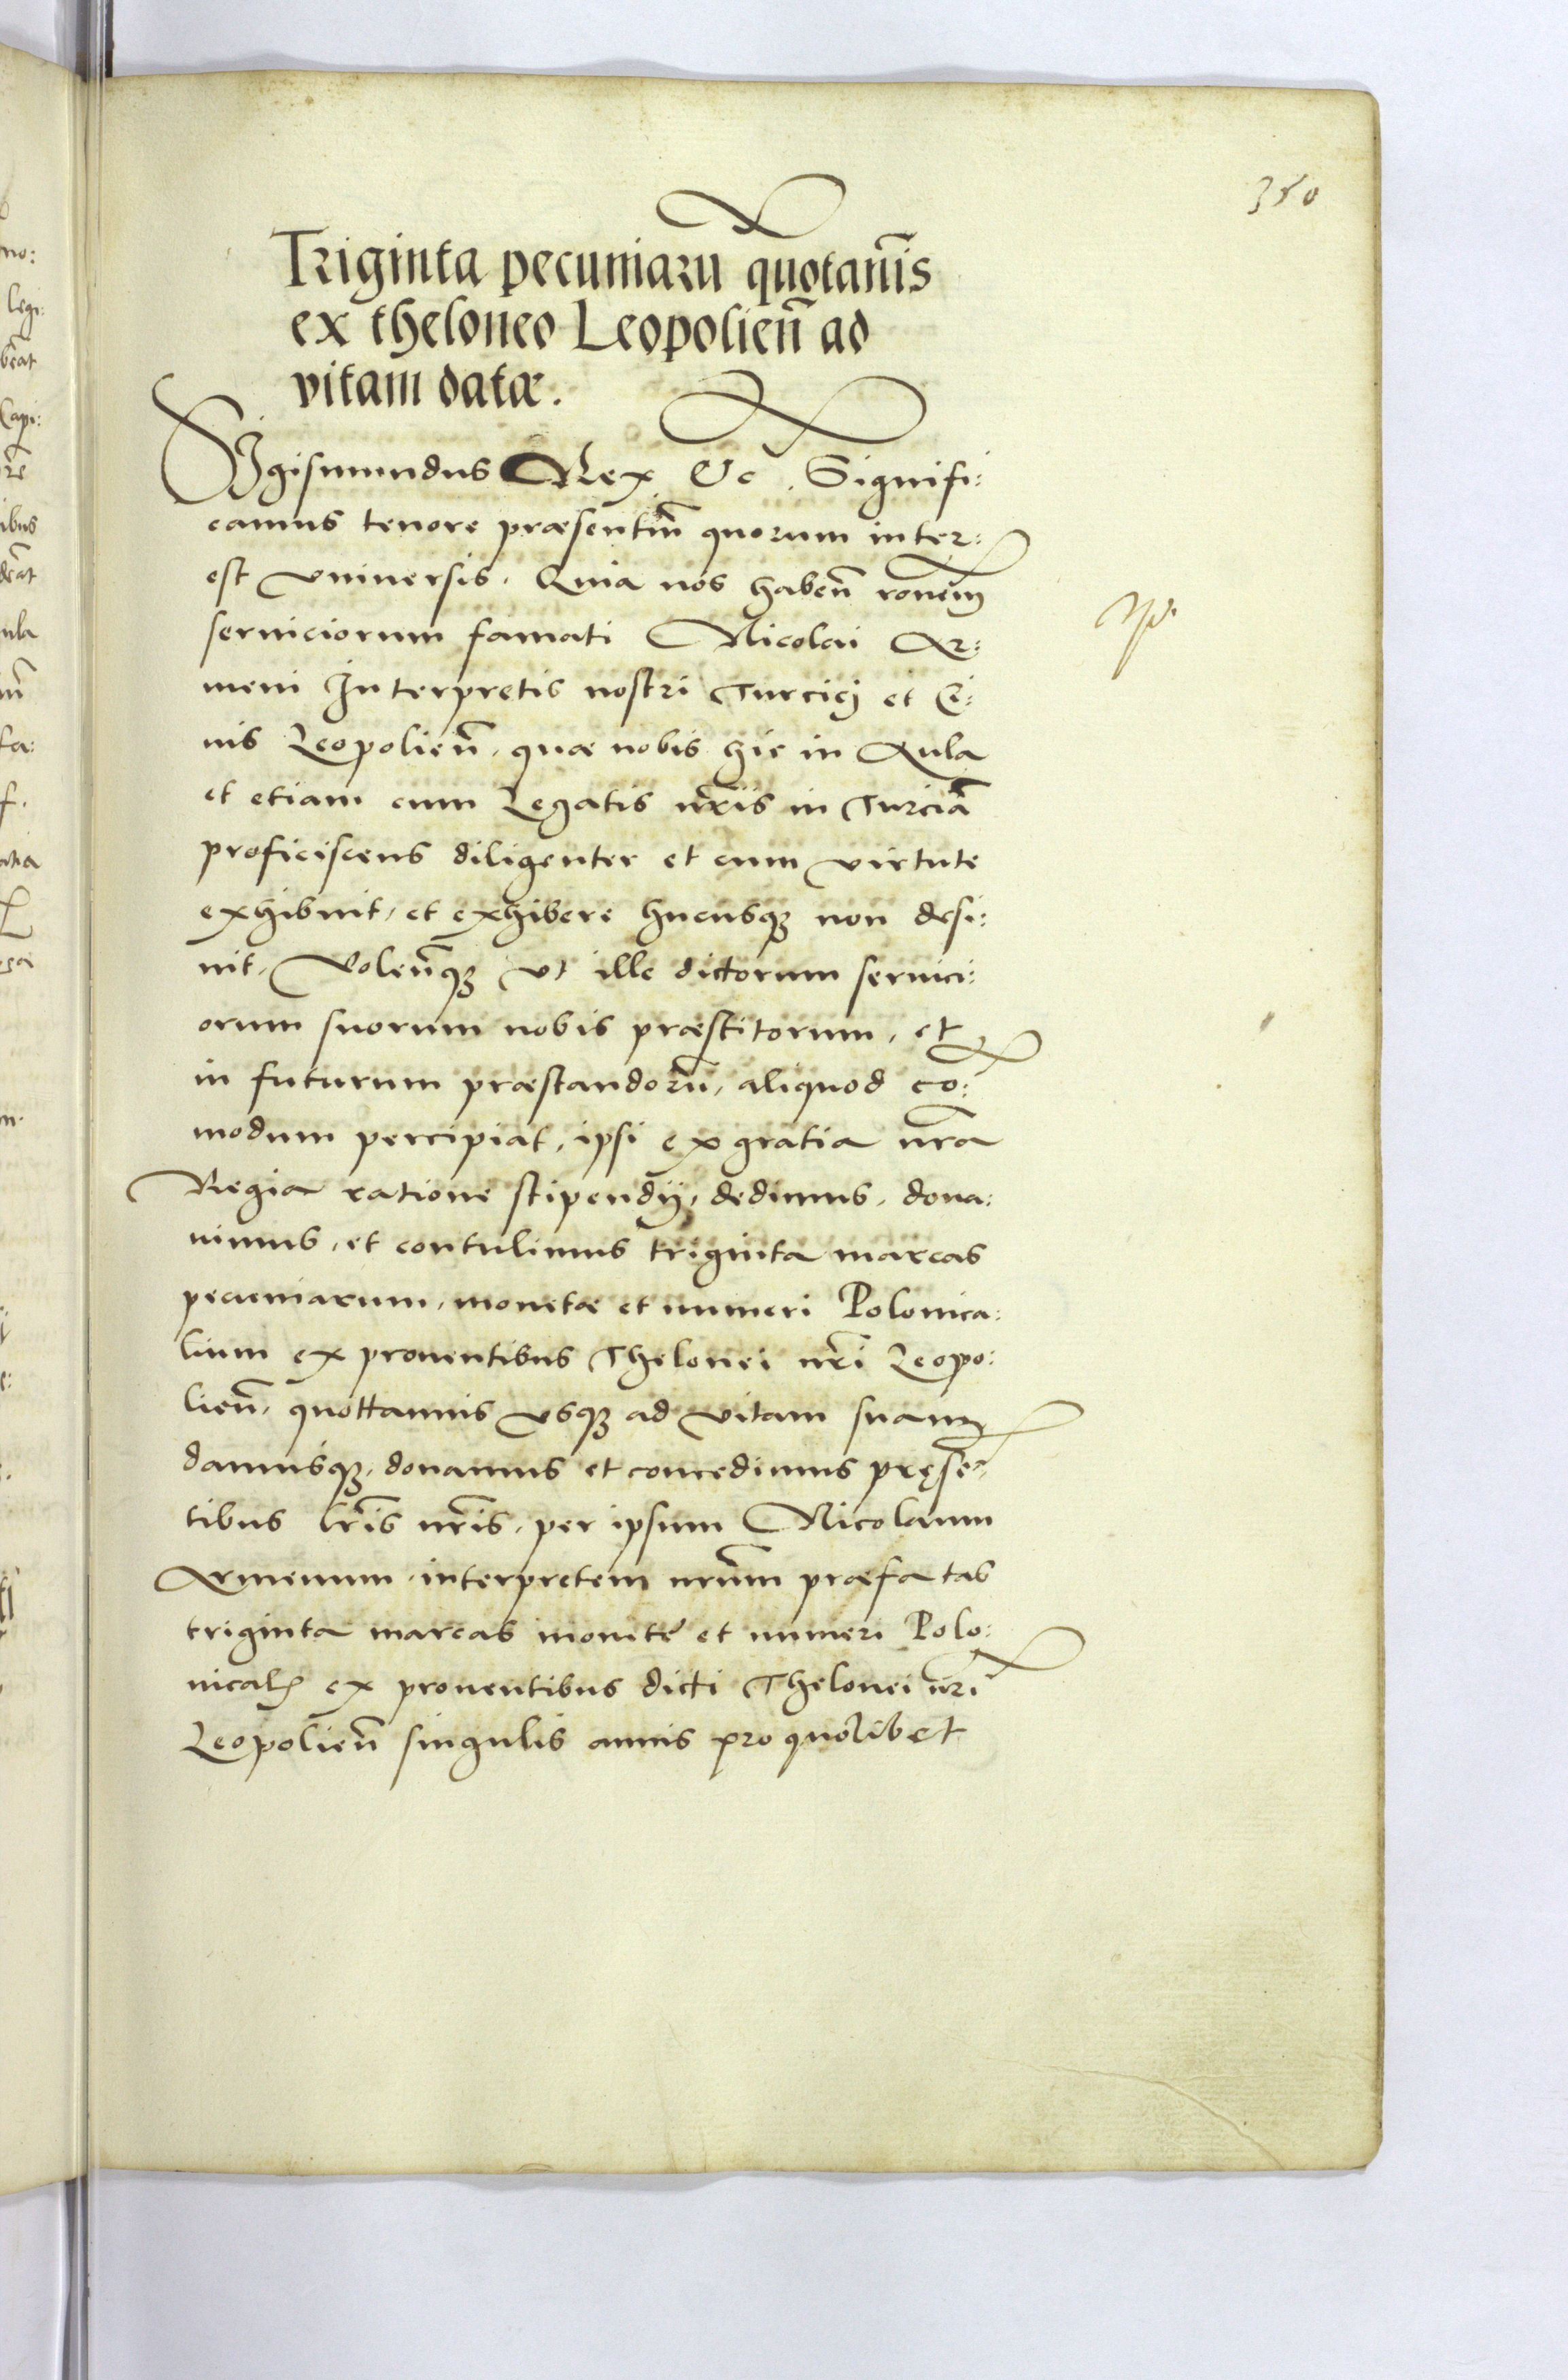 380
Triginta pecuniaru quotañis
ex theloneo Leopolieñ ad
vitam datæ.
Sigismundus Rex &c. Signifi:
camus tenore præsentiũ quorum inter:
est vniuersis. Quia nos habeñ ronem
seruiciorum famati Nicolai Ar:
meni Interpretis nostri Turcici et Ci:
uis Leopolieñ. quæ nobis hic in Aula
et etiam cum Legatis nr̃is in Turciã
proficiscens diligenter et cum virtute
exhibuit, et exhibere hucusq₃ non desi:
nit, Voleñq₃ vt ille dictorum seruici:
orum suorum nobis præstitorum, et
in futurum præstandorũ, aliquod co:
modum percipiat, ipsi ex gratia nr̃a
Regia ratione stipendij, dedimus, dona:
uimus, et contulimus triginta marcas
pecuniarum, monetæ et numeri Polonica:
lium ex prouentibus Thelonei nr̃i Leopo:
lieñ, quottannis vsq₃ ad vitam suam
damusq₃, donamus et concedimus pręsẽ:
tibus lr̃is nr̃is, per ipsum Nicolaum
Armenum interpretem nr̃um præfatas
triginta marcas monetę et numeri Polo:
nical ex prouentibus dicti Thelonei nr̃i
Leopolieñ singulis annis pro quolibet